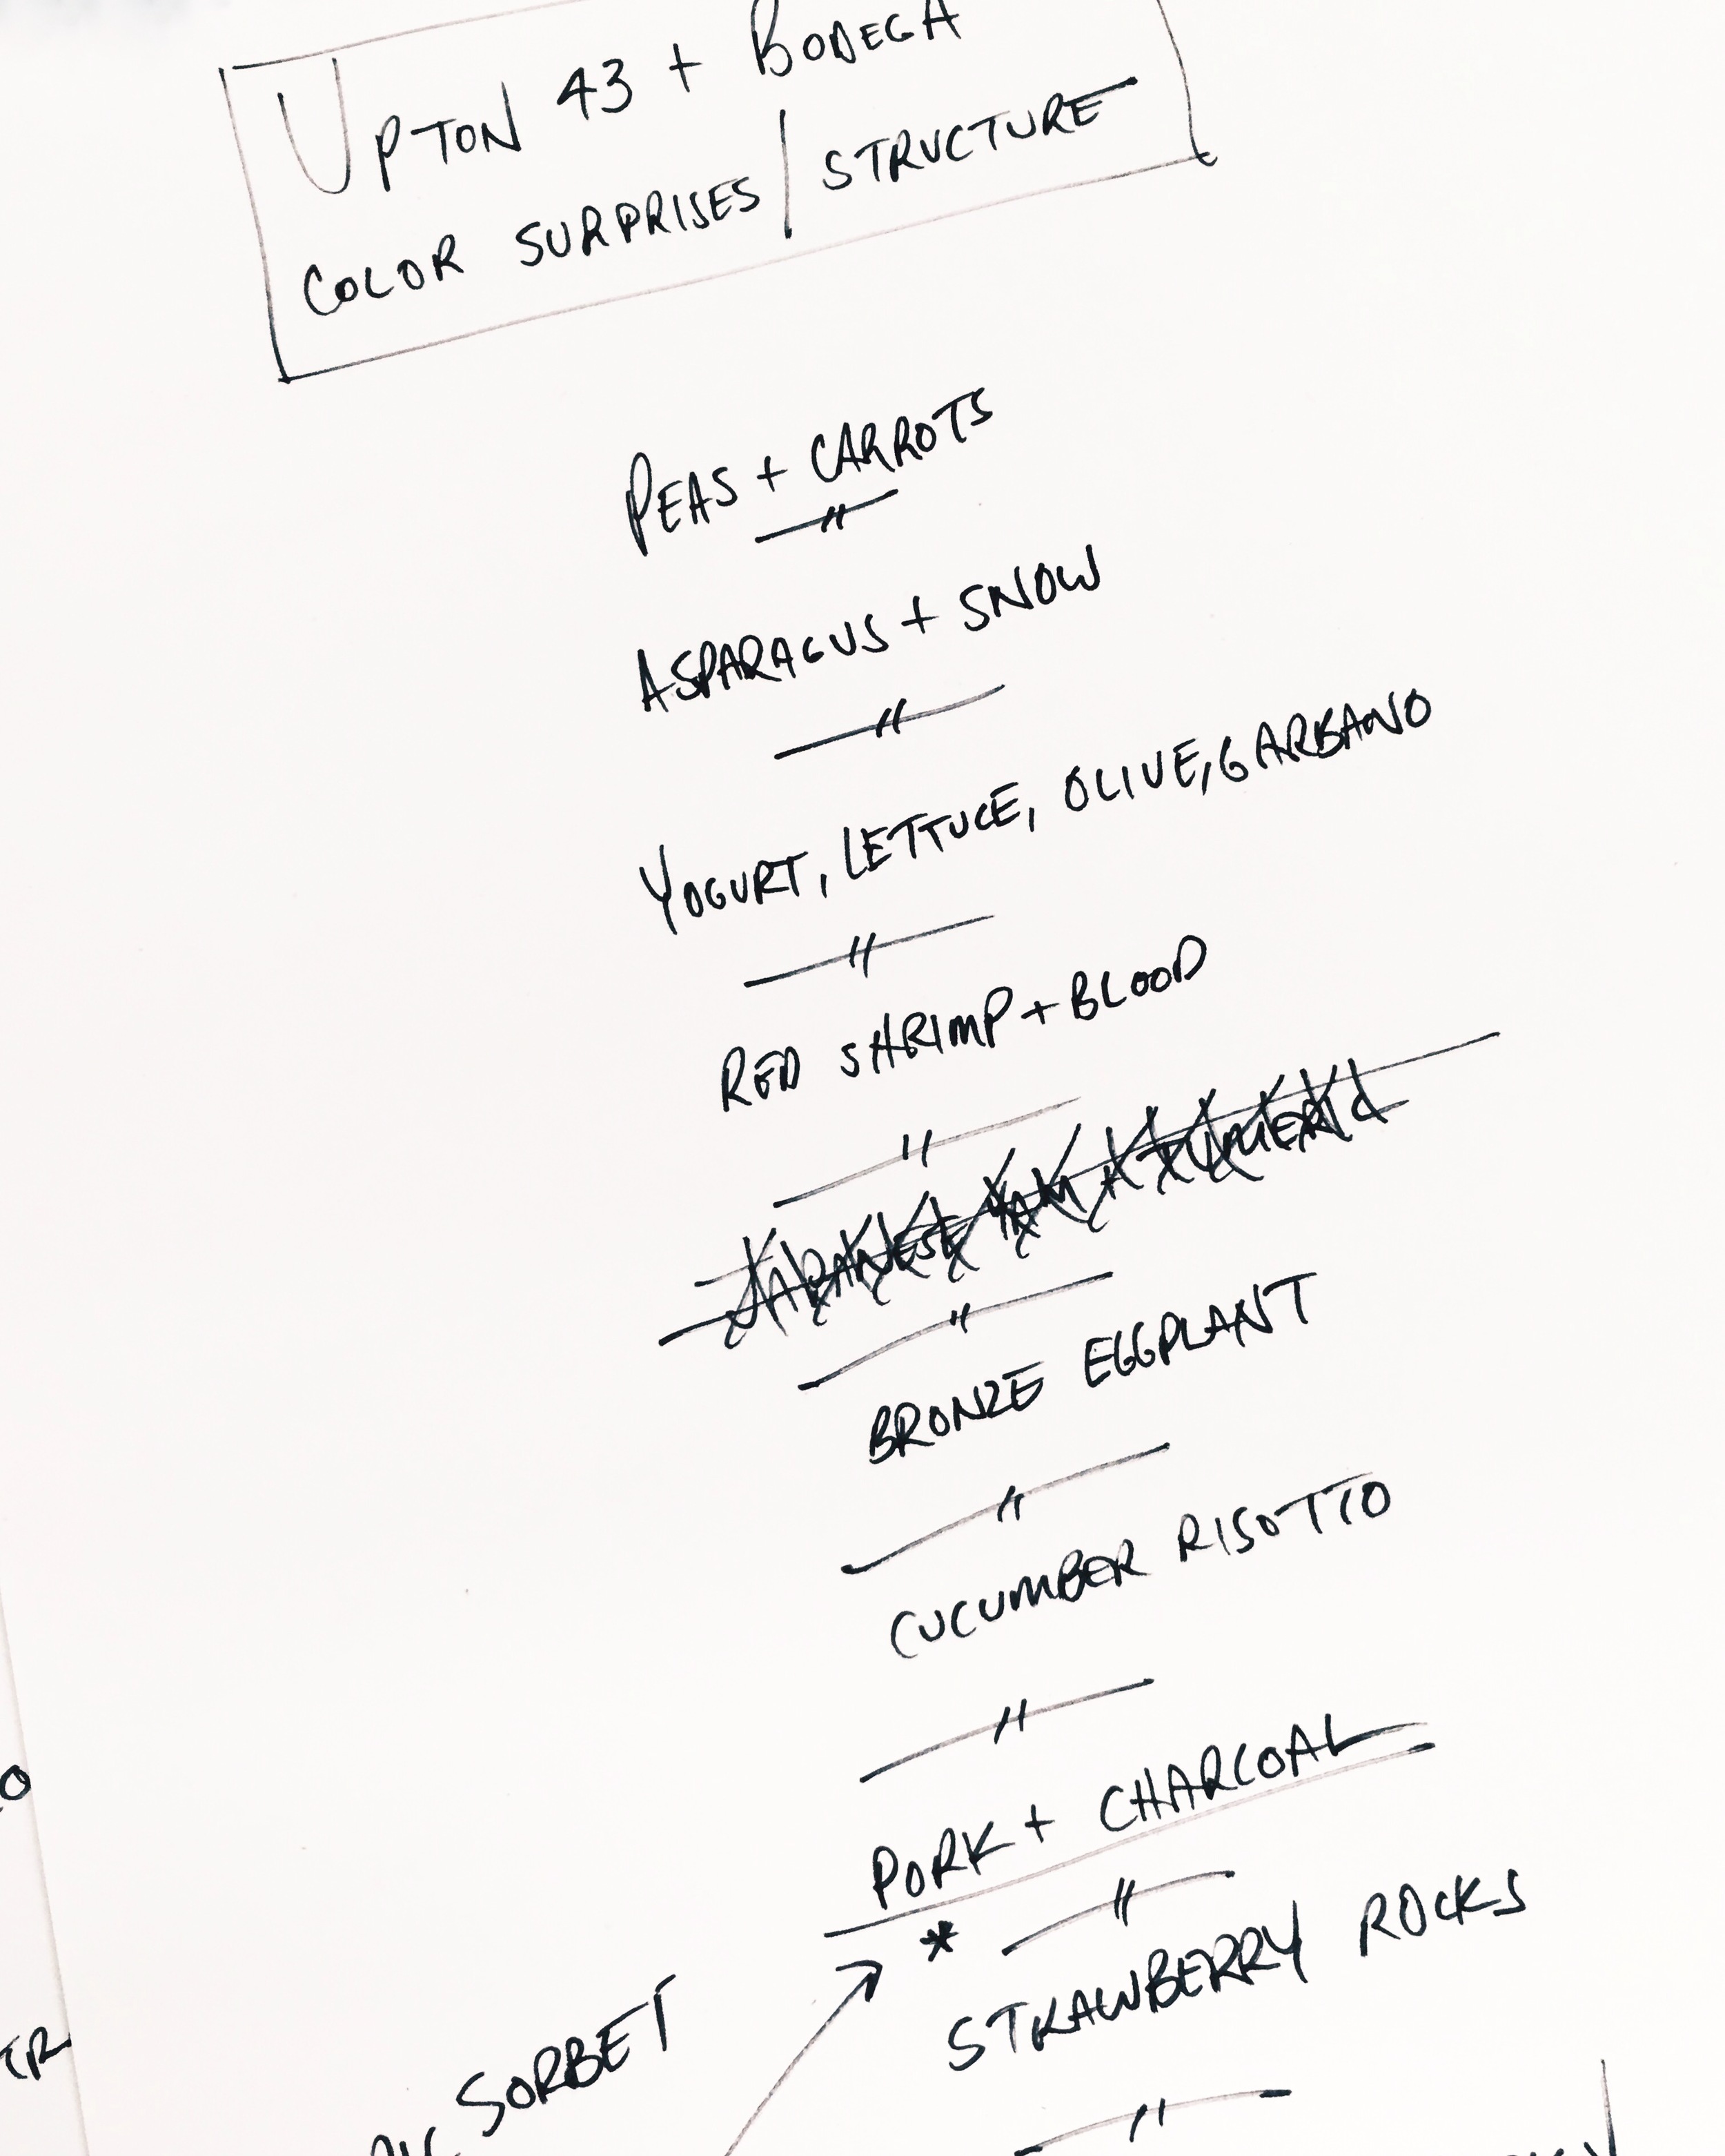 UPTON 43 + BODEGA
COLOR SURPRISES | STRUCTURE
PEAS + CARROTS
"
ASPARAGUS + SNOW
"
YOGURT, LETTUCE, OLIVE, GARBANO
"
RED SHRIMP + BLOOD
"
JAPANESE YAM
"
BRONZE EGGPLANT
"
CUCUMBER RISOTTO
"
PORK + CHARCOAL
* "
STRAWBERRY ROCKS
SORBET
"